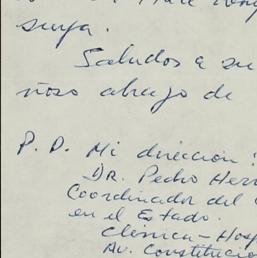 suya.
Saludos a su
ñoso abrazo de
P. D. Mi dirección:
DR. Pedro Herr
Coordinador del
en el Estado.
Clínica-Hosp
Av. Constitucio